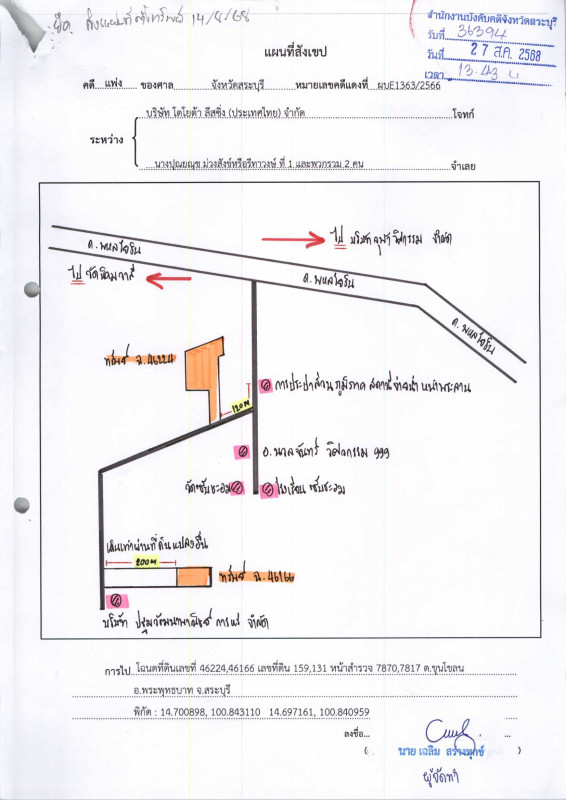 ยึด ส่งแผนที่ตั้งทรัพย์ 14/8/68
สำนักงานบังคับคดีจังหวัดสระบุรี
รับที่ 36394
วันที่ 27 ส.ค. 2568
เวลา 13.43 น
แผนที่สังเขป
คดี แพ่ง ของศาล จังหวัดสระบุรี หมายเลขคดีแดงที่ ผบE1363/2566
บริษัท โตโยต้า ลีสซิ่ง (ประเทศไทย) จำกัด โจทก์
ระหว่าง
นางปุณยณุช ม่วงสังข์หรือรีทาวงษ์ ที่ 1 และพวกรวม 2 คน จำเลย
ไป บริษัท จุฬา วิศกรรม จำกัด
ถ. พหลโยธิน
ไป วัด
ถ. พหลโยธิน
ถ. พหลโยธิน
ทรัพย์ ฉ. 46224
การประปาส่วนภูมิภาค สถานีจ่ายน้ำ หน้าพระลาน
120M
อ. นาลจันทร์ วิศวกรรม 999
วัดซับชะอม
โรงเรียน ซับชะอม
เดินเท้าผ่านที่ดินแปลงอื่น
200M
ทรัพย์ ฉ. 46166
บริษัท การแร่ จำกัด
การไป โฉนดที่ดินเลขที่ 46224,46166 เลขที่ดิน 159,131 หน้าสำรวจ 7870,7817 ต.ขุนโขลน
อ.พระพุทธบาท จ.สระบุรี
พิกัด : 14.700898, 100.843110 14.697161, 100.840959
ลงชื่อ...
( นาย เฉลิม สร้างทุกข์ )
ผู้จัดทำ